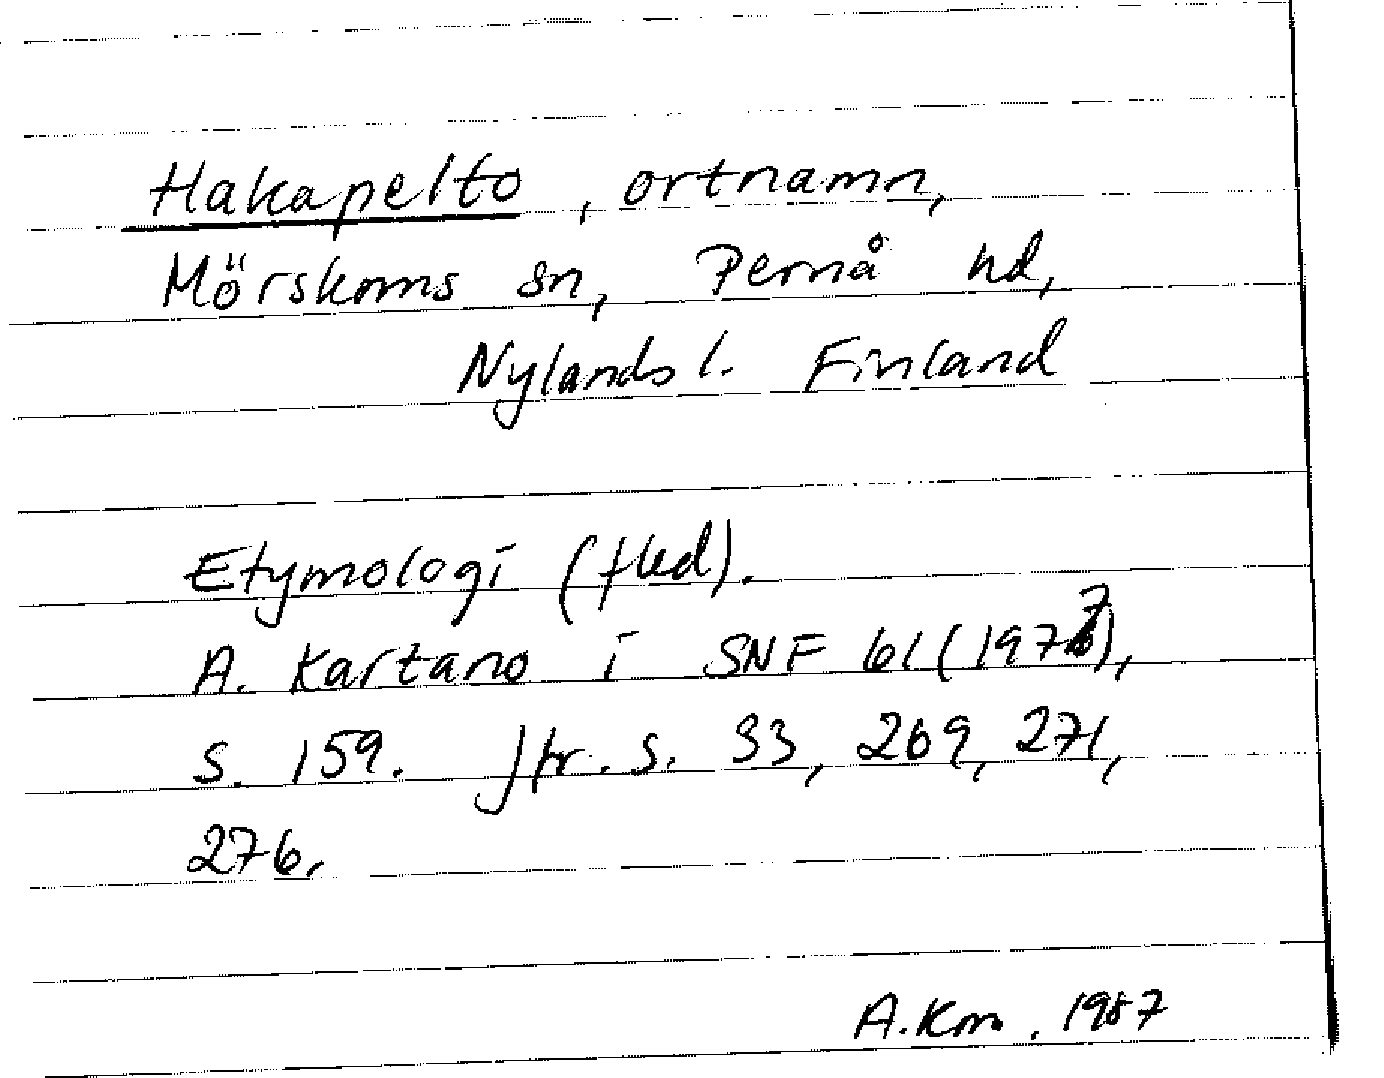 Hakapelto, ortnamn,
Mörskoms sn, Pernå hd,
Nylands l. Finland
Etymologi (fled).
A. Kartano i SNF 61 (1977),
s. 159. Jfr. s. 33, 269, 271,
276.
A.Km. 1987